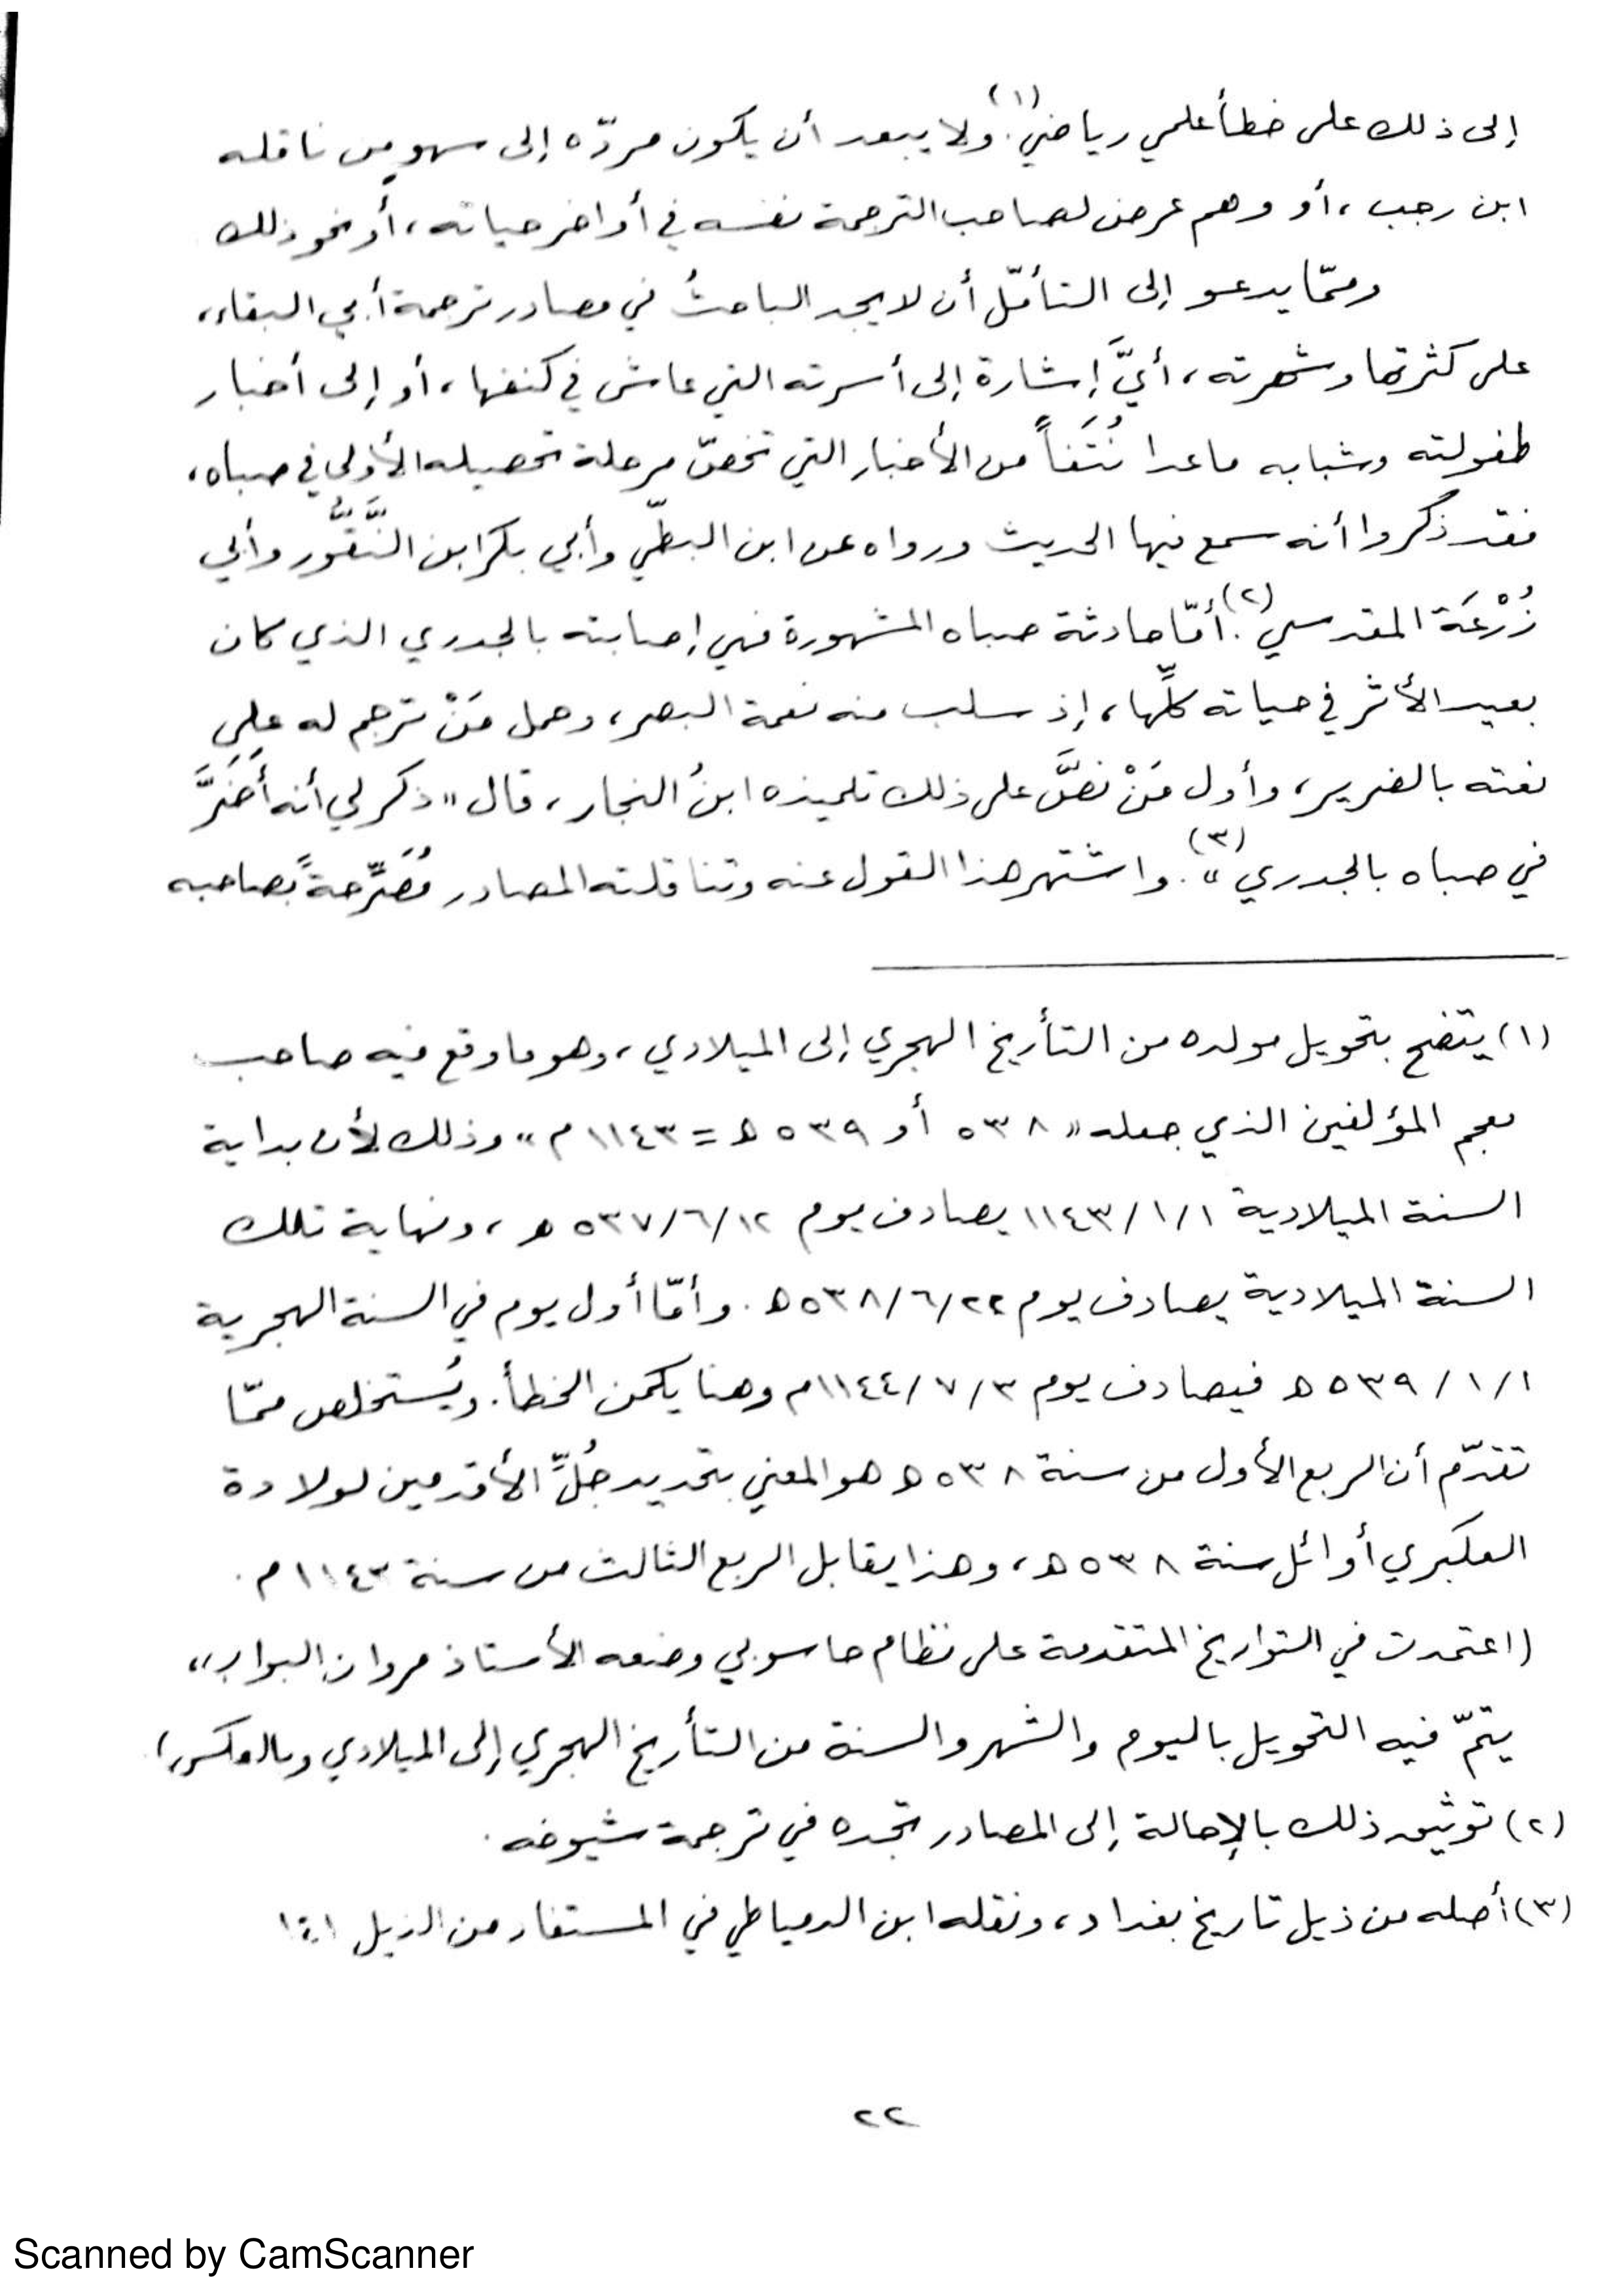 إلى ذلك على خطأ علمي رياضي(١). ولا يبعد أن يكون مردّه إلى سهوٍ من ناقله
ابن رجب، أو وهم عرض لصاحب الترجمة نفسه في أواخر حياته، أو نحو ذلك
وممّا يدعو إلى التأمّل أن لا يجد الباحثُ في مصادر ترجمة أبي البقاء،
على كثرتها وشهرته، أيَّ إشارة إلى أسرته التي عاش في كنفها، أو إلى أخبار
طفولته وشبابه ما عدا نُتَفاً من الأخبار التي تخصّ مرحلة تحصيله الأولى في صباه،
فقد ذكروا أنه سمع فيها الحديث ورواه عن ابن البطّي وأبي بكر ابن النَّقُّور وأبي
زُرْعَة المقدسي(٢). أمّا حادثة صباه المشهورة فهي إصابته بالجدري الذي كان
بعيد الأثر في حياته كلِّها، إذ سلب منه نعمة البصر، وحمل مَنْ ترجم له على
نعته بالضرير، وأول مَنْ نصَّ على ذلك تلميذه ابنُ النجار، قال "ذكر لي أنه أَضَرَّ
في صباه بالجدري"(٣). واشتهر هذا القول عنه وتناقلته المصادر مُصَرِّحةً بصاحبه
(١) يتضح بتحويل مولده من التأريخ الهجري إلى الميلادي، وهو ما وقع فيه صاحب
معجم المؤلفين الذي جعله "٥٣٨ أو ٥٣٩ هـ = ١١٤٣ م" وذلك لأن بداية
السنة الميلادية ١/١/١١٤٣ يصادف يوم ١٢/٦/٥٣٧ هـ، ونهاية تلك
السنة الميلادية يصادف يوم ٢٢/٦/٥٣٨ هـ. وأمّا أول يوم في السنة الهجرية
١/١/٥٣٩ هـ فيصادف يوم ٣/٧/١١٤٤ م وهنا يكمن الخطأ. ويُستخلص ممّا
تقدّم أن الربع الأول من سنة ٥٣٨ هـ هو المعني بتحديد جُلِّ الأقدمين لولادة
العكبري أوائل سنة ٥٣٨ هـ، وهذا يقابل الربع الثالث من سنة ١١٤٣ م.
(اعتمدت في التواريخ المتقدمة على نظام حاسوبي وضعه الأستاذ مروان البواب،
يتمّ فيه التحويل باليوم والشهر والسنة من التأريخ الهجري إلى الميلادي وبالعكس).
(٢) توثيق ذلك بالإحالة إلى المصادر تجده في ترجمة شيوخه.
(٣) أصله من ذيل تاريخ بغداد، ونقله ابن الدمياطي في المستفاد من الذيل
٢٢
Scanned by CamScanner